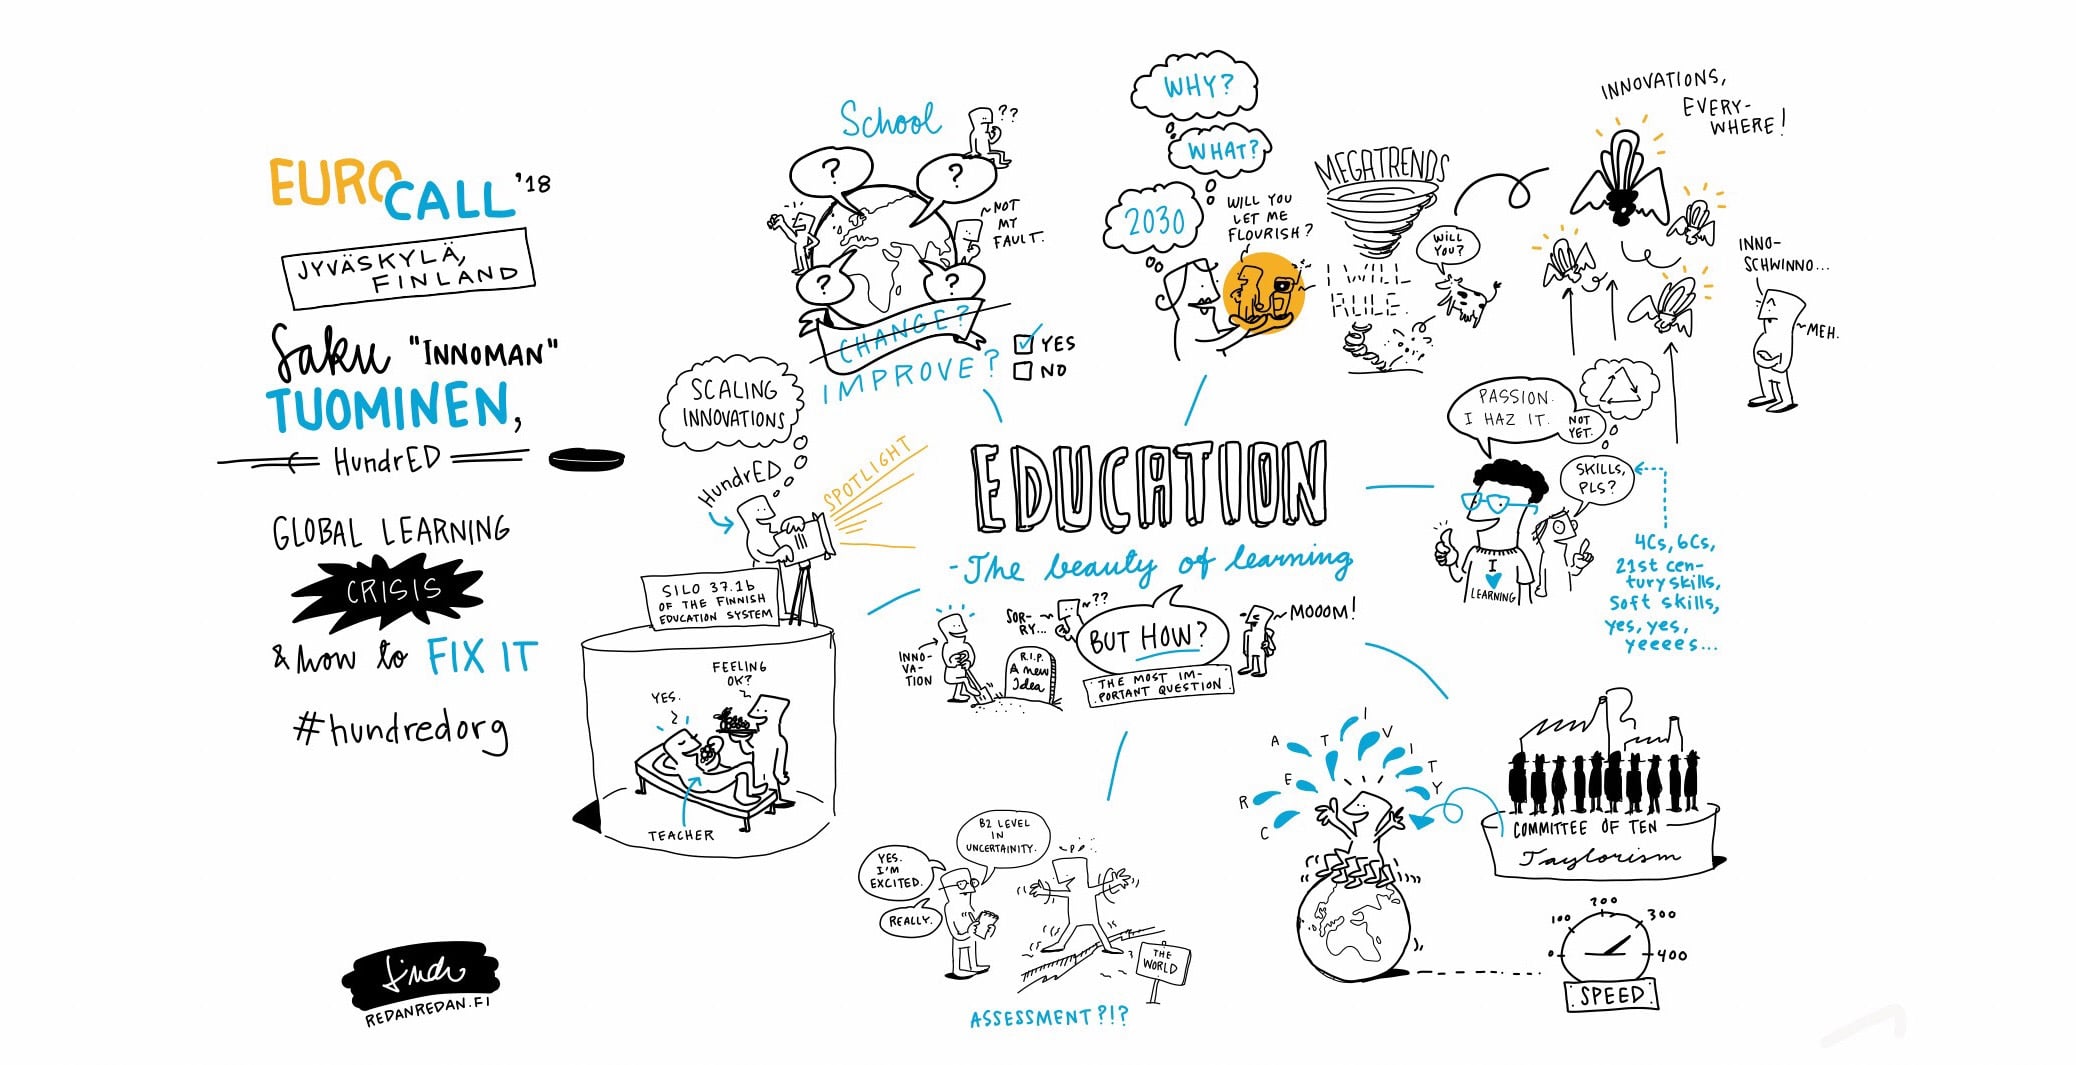 EUROCALL '18
JYVÄSKYLÄ,
FINLAND
Saku "INNOMAN"
TUOMINEN,
HundrED
GLOBAL LEARNING
CRISIS
& how to FIX IT
#hundredorg
REDANREDAN.FI
School
??
?
?
NOT
MY
FAULT.
?
?
CHANGE?
IMPROVE?
YES
NO
SCALING
INNOVATIONS
HundrED
SPOTLIGHT
SILO 37.1b
OF THE FINNISH
EDUCATION SYSTEM
FEELING
OK?
YES.
TEACHER
WHY?
WHAT?
2030
WILL YOU
LET ME
FLOURISH?
MEGATRENDS
I WILL
RULE.
WILL
YOU?
INNOVATIONS,
EVERY-
WHERE!
INNO-
SCHWINNO...
MEH.
EDUCATION
- The beauty of learning
INNO-
VA-
TION
SOR-
RY...
??
R.I.P.
A new
Idea
BUT HOW?
THE MOST IM-
PORTANT QUESTION
MOOOM!
PASSION.
I HAZ IT.
NOT
YET.
SKILLS,
PLS?
I
LEARNING
4Cs, 6Cs,
21st cen-
tury skills,
Soft skills,
yes, yes,
yeeees...
CREATIVITY
COMMITTEE OF TEN
Taylorism
0 100 200 300 400
SPEED
B2 LEVEL
IN
UNCERTAINITY.
YES.
I'M
EXCITED.
REALLY.
THE
WORLD
ASSESSMENT?!?